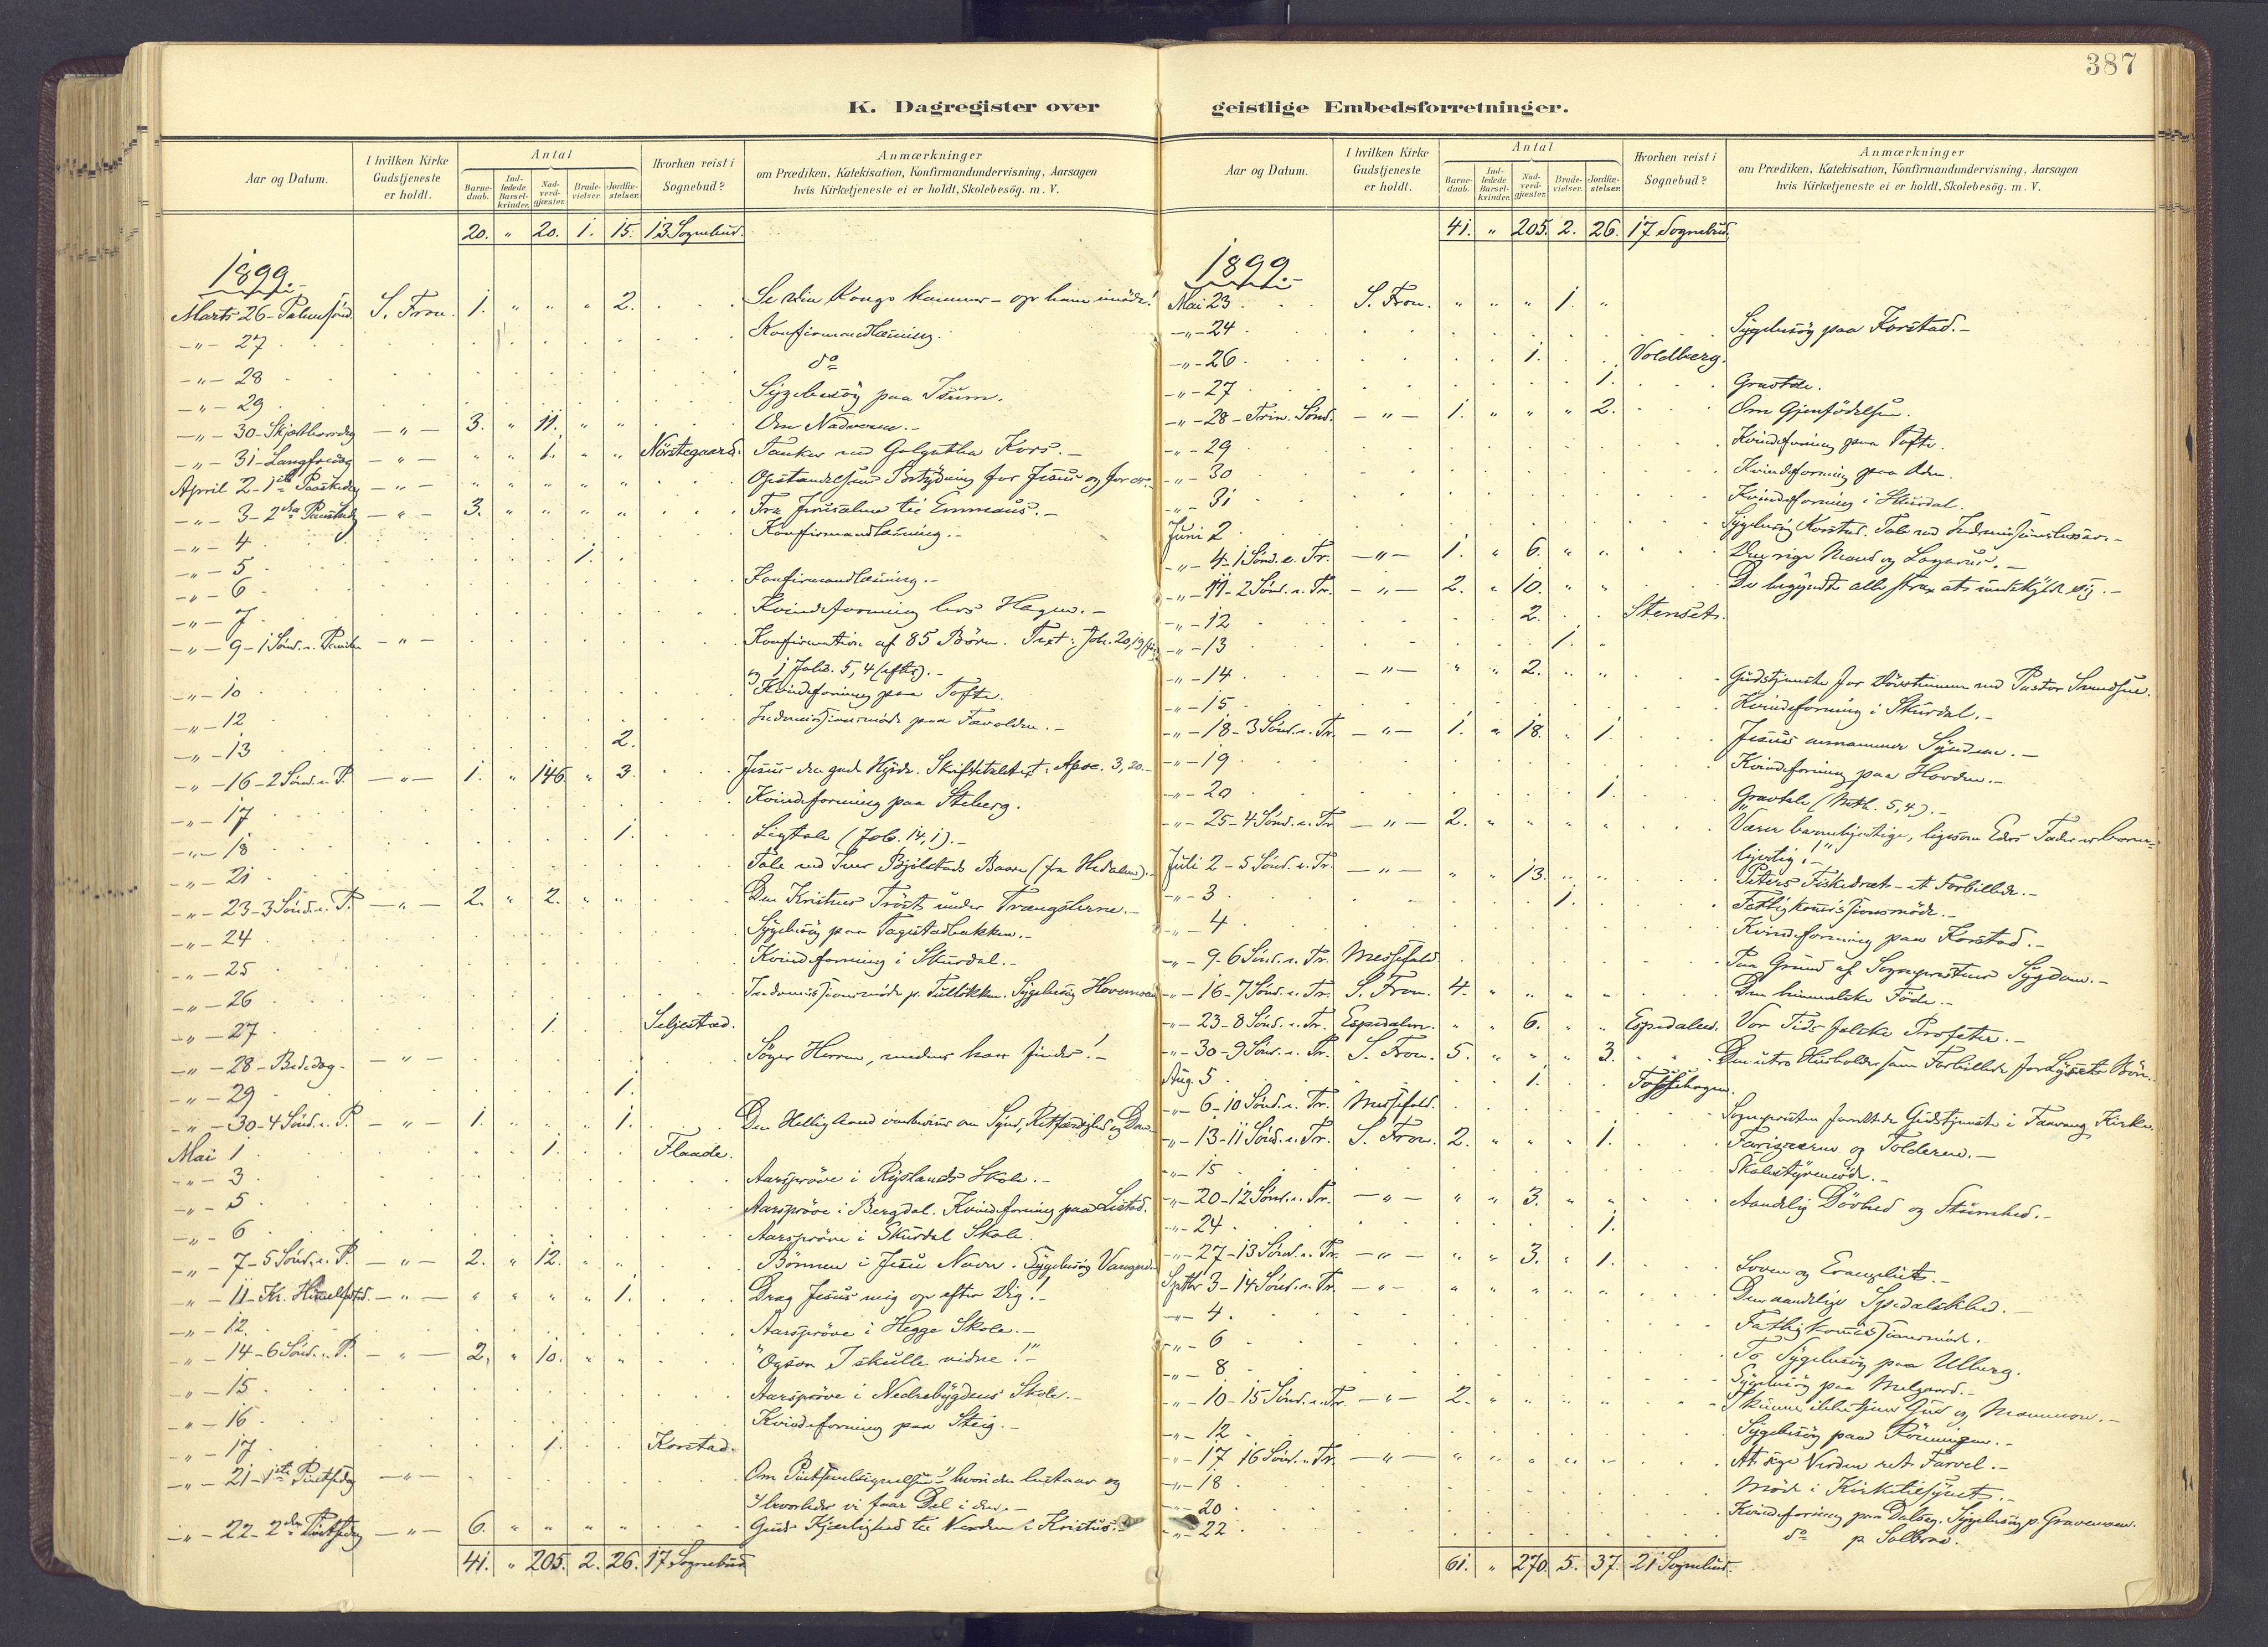 387
K. Dagregister over
geistlige Embedsforretninger.
Aar og Datum.
I hvilken Kirke Gudstjeneste er holdt.
Antal
Barnedaab.
Indledede Barselkvinder.
Nadverdgjæster.
Brudevielser.
Jordfæstelser.
Hvorhen reist i Sognebud?
Anmærkninger
om Prædiken, Katekisation, Konfirmandundervisning, Aarsagen
hvis Kirketjeneste ei er holdt, Skolebesög. m. V.
20. " 20. 1. 15. 13 Sognebud.
1899.
Marts 26 - Palmesönd. S. Fron. 1. " " " 2. Se din Konge kommer - op ham imöde!
-"- 27 Konfirmandlæsning.
-"- 28 do
-"- 29 Sygebesög paa Isum.
-"- 30 - Skjærthorsdag -"- 3. " 11. " " Om Nadveren.-
-"- 31 - Langfredag -"- " " 1. " " Nörstegaard. Tanker ved Golgatha Kors.-
April 2 - 1ste Paaskedag -"- " " " " " Opstandelsens Betydning for Jesus og for os.-
-"- 3 - 2den Paaskedag -"- 3. " " " " Fra Jerusalem til Emmaus.-
-"- 4 Konfirmandlæsning.-
-"- 5 1.
-"- 6 Konfirmandlæsning.-
-"- 7 Kvindeforening hos Hagen.-
-"- 9 - 1 Sönd. e. Paaske -"- Konfirmation af 85 Börn. Text: Joh. 20,19
og 1 Joh. 5,4 (efter).-
-"- 10 Kvindeforening paa Tofte.
-"- 12 Indremissionsmöde paa Tævolden.-
-"- 13 2.
-"- 16 - 2 Sönd. e. P. -"- 1. " 146 " 3. Jesus den gode Hyrde. Skriftetaletext: Apoc. 3,20.-
-"- 17 Kvindeforening paa Steberg.
-"- 18 1. Ligtale (Job. 14,1).-
-"- 21 Tale ved Iver Bjölstads Baare (fra Hedalen).-
-"- 23 - 3 Sönd. e. P. -"- 2. " 2. " " Den Kristnes Tröst under Trængslerne.-
-"- 24 Sygebesög paa Tagestadbakken.-
-"- 25 Kvindeforening i Skurdal.-
-"- 26 Indremissionsmöde p. Tullökken. Sygebesög
-"- 27 1. Seljestad.
-"- 28 - Bededag - -"- Söger Herren, medens han findes!-
-"- 29 1.
-"- 30 - 4 Sönd. e. P. -"- 1. 1. Den Hellig Aand overbeviser om Synd, Retfærdighed og Dom
Mai 1 1. Flaade.
-"- 3 Aarspröve i Ryslands Skole.-
-"- 5 Aarspröve i Bergdal. Kvindeforening paa Listad.
-"- 6 Aarspröve i Skurdal Skole.
-"- 7 - 5 Sönd. e. P. -"- 2. " 12. " " Bönnen i Jesu Navn. Sygebesög
-"- 11 - Kr. Himmelfartsd. -"- " " " " 1. Drag Jesus mig op efter Dig!-
-"- 12. Aarspröve i Hegge Skole.-
-"- 14 - 6 Sönd. e. P. -"- 2. " 10. " " "Ogsaa I skulle vidne!"-
-"- 15 Aarspröve i Nedrebygdens Skole.-
-"- 16 Kvindeforening paa Steig.-
-"- 17 1. Korstad.
-"- 21 - 1ste Pintsedag -"- Om Pintsevelsignelsen" hvori den bestaar og
hvorledes vi faar Del i den.-
-"- 22 - 2den Pintsedag -"- 6. " " " " Guds Kjærlighed til Verden i Kristus.-
41. " 205. 2. 26. 17 Sognebud
Aar og Datum.
I hvilken Kirke Gudstjeneste er holdt.
Antal
Barnedaab.
Indledede Barselkvinder.
Nadverdgjæster.
Brudevielser.
Jordfæstelser.
Hvorhen reist i Sognebud?
Anmærkninger
om Prædiken, Katekisation, Konfirmandundervisning, Aarsagen
hvis Kirketjeneste ei er holdt, Skolebesög. m. V.
41. " 205. 2. 26. 17 Sognebud.
1899.-
Mai 23 S. Fron. " " " 1. "
-"- 24 Sygebesög paa Korstad.-
-"- 26 1. Voldberg.
-"- 27 1. Gravtale.
-"- 28 - Trin. Sönd. -"- 1. " " " 2. Om Gjenfödelsen.
-"- 29 Kvindeforening paa Tofte.
-"- 30 Kvindeforening paa
-"- 31 Kvindeforening i Skurdal.
Juni 2 Sygebesög Korstad. Tale ved
-"- 4 - 1 Sönd. e. Tr. -"- 1. " 6. " " Den rige Mand og Lazarus.-
-"- 11 - 2 Sönd. e. Tr. -"- 2. " 10. " " De begyndte alle strax at undskylde sig.-
-"- 12 2. Stenset.
-"- 13 1.
-"- 14 -"- " " 2. " " Gudstjeneste for Dövstumme ved Pastor Svendsen.
-"- 15 Kvindeforening i Skurdal.-
-"- 18 - 3 Sönd. e. Tr. -"- 1. " 18. " 1. Jesus annammer Syndere.-
-"- 19 Kvindeforening paa Hovden.-
-"- 20 1. Gravtale (Mth. 5,4).-
-"- 25 - 4 Sönd. e. Tr. -"- 2. " " " " "Værer barmhjertige, ligesom Eders Fader er barm-
hjertig!"
Juli 2 - 5 Sönd. e. Tr. -"- " " 13. " " Peters Fiskedræt - et Forbillede.-
-"- 3 1. Fattigkommissionsmöde.-
-"- 4 Kvindeforening paa Korstad.-
-"- 9 - 6 Sönd. e. Tr. Messefald. Paa Grund af Sognepræstens Sygdom.-
-"- 16 - 7 Sönd. e. Tr. S. Fron. 4. " " " " Den himmelske Föde.-
-"- 23 - 8 Sönd. e. Tr. Espedalen. " " 6. " " Espedalen. Vor Tids falske Profeter.-
-"- 30 - 9 Sönd. e. Tr. S. Fron. 5. " " " 3. Den utro Husholder som Forbillede for Lysets Börn.
Aug. 5 1.
-"- 6 - 10 Sönd. e. Tr. Messefald. Sognepræsten forrettede Gudstjeneste i Faavang Kirke.
-"- 13 - 11 Sönd. e. Tr. S. Fron. 2. " " " 1. Farisæeren og Tolderen.-
-"- 15 Skolestyremöde.-
-"- 20 - 12 Sönd. e. Tr. -"- " " 3. " " Aandelig Dövhed og Stumhed.-
-"- 24 1.
-"- 27 - 13 Sönd. e. Tr. -"- " " 3. " 1. Loven og Evangeliet.-
Septbr 3 - 14 Sönd. e. Tr. -"- " " " " " Den aandelige Spedalskhed.-
-"- 4 Fattigkommissionsmöde.
-"- 6 To Sygebesög paa Ulberg.
-"- 8 Sygebesög paa Melgaard.-
-"- 10 - 15 Sönd. e. Tr. -"- 2. " " " " I kunne ikke tjene Gud og Mammon.-
-"- 12 Sygebesög paa
-"- 17 16 Sönd. e. Tr. -"- " " " " " At sige Verden ret Farvel.-
-"- 18 Möde i Kirketilsynet.-
-"- 20 Kvindeforening paa Dalseg. Sygebesög p.
-"- 22 do p. Solbraa.
61. " 270. 5. 37. 21 Sognebud.